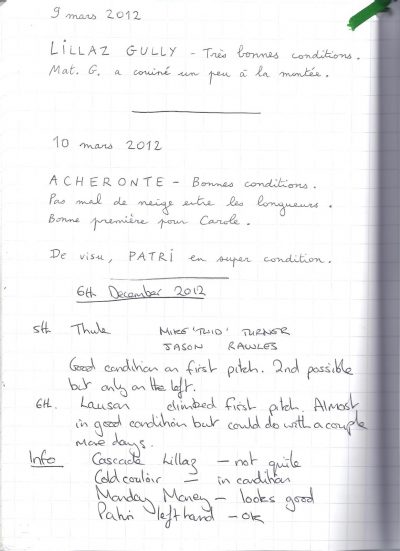 9 mars 2012
LILLAZ GULLY - Très bonnes conditions.
Mat. G. a couiné un peu à la montée.
10 mars 2012
ACHERONTE - Bonnes conditions.
Pas mal de neige entre les longueurs.
Bonne première pour Carole.
De visu, PATRI en super condition.
6th December 2012
5th Thule MIKE 'TWID' TURNER
JASON RAWLES
Good condition on first pitch. 2nd possible
but only on the left.
6th. Lauson climbed first pitch. Almost
in good condition but could do with a couple
more days.
Info Cascade Lillaz - not quite
Cold couloir - in condition
Monday Money - looks good
Patri left hand - ok